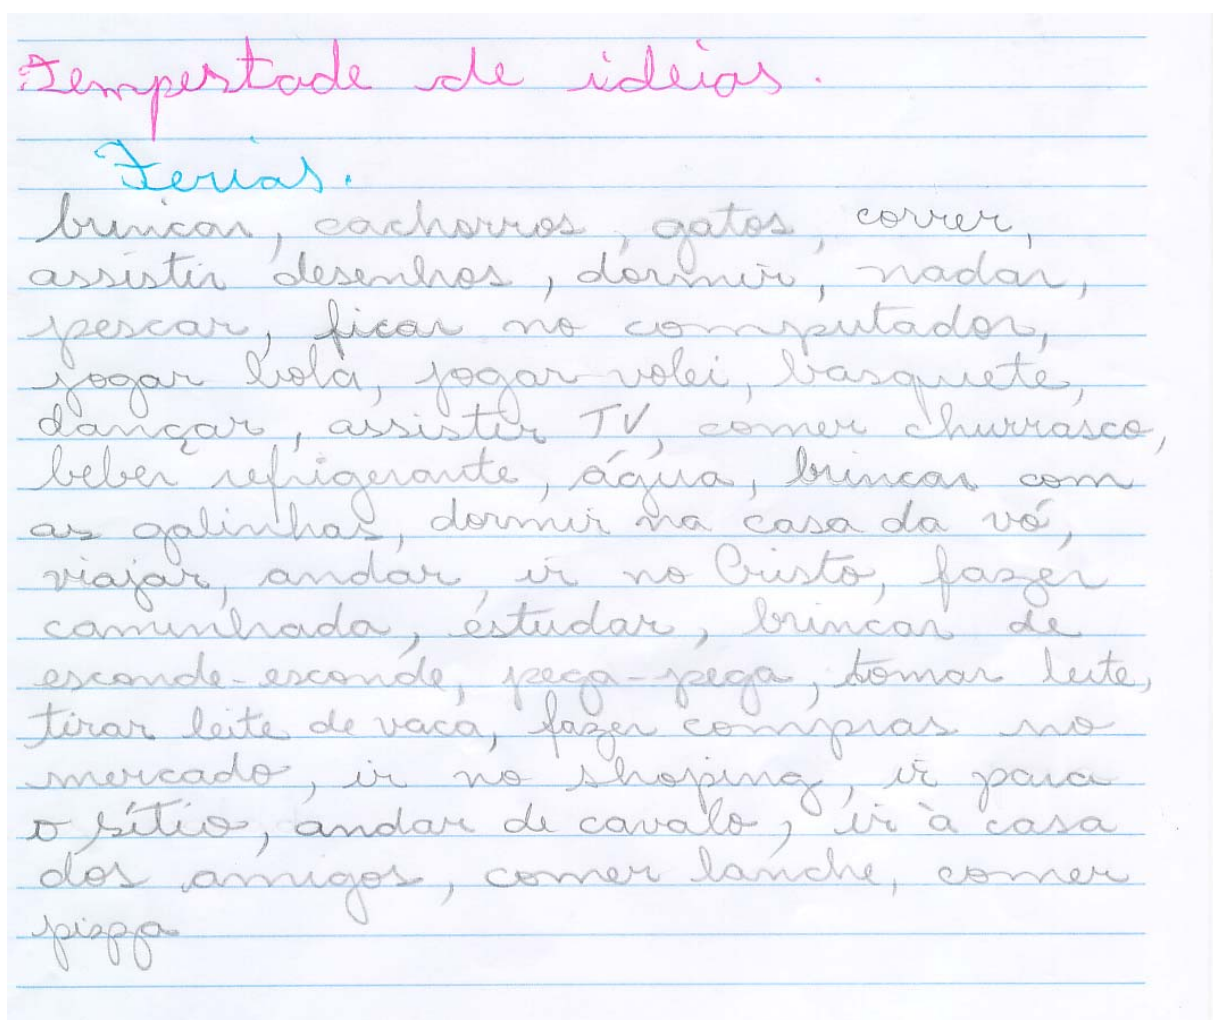 Tempestade de idéias.
Ferias.
brincar, cachorros, gatos, correr,
assistir desenhos, dormir, nadar,
pescar, ficar no computador,
jogar bola, jogar volei, basquete,
dançar, assistir TV, comer churrasco,
beber refrigerante, água, brincar com
as galinhas, dormir na casa da vó,
viajar, andar, ir no Cristo, fazer
caminhada, estudar, brincar de
esconde-esconde, pega-pega, tomar leite,
tirar leite de vaca, fazer compras no
mercado, ir no shoping, ir para
o sítio, andar de cavalo, ir à casa
dos amigos, comer lanche, comer
pizza